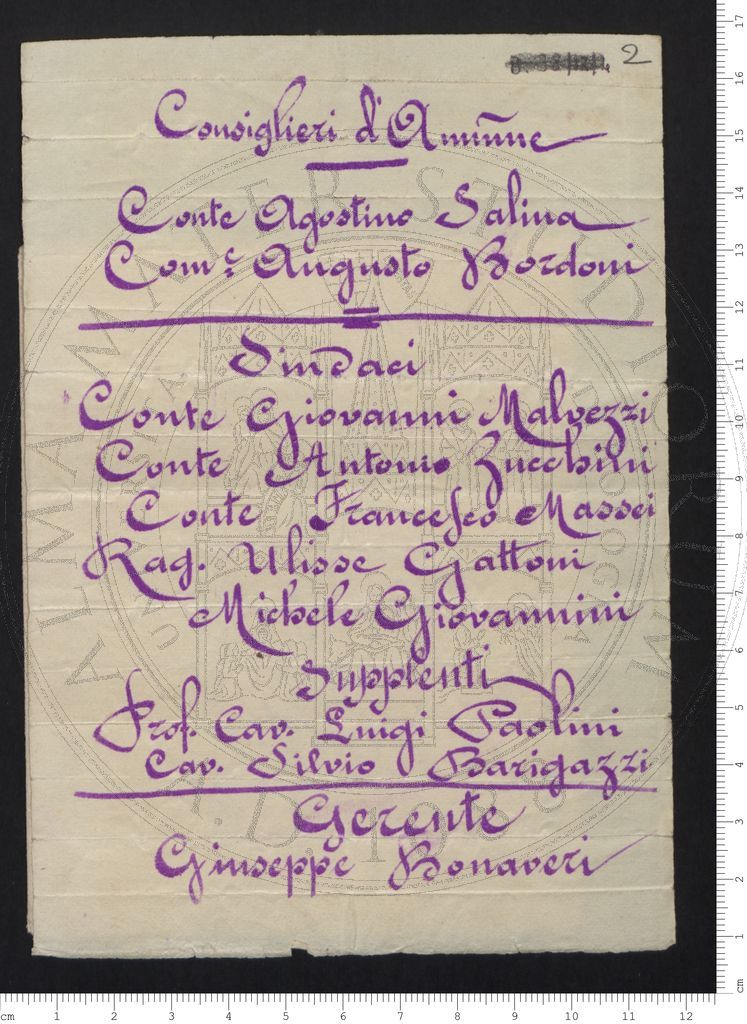 2
Consiglieri d'Amm̃ne
Conte Agostino Salina
Com.e Augusto Bordoni
Sindaci
Conte Giovanni Malvezzi
Conte Antonio Zucchini
Conte Francesco Massei
Rag. Ulisse Gattoni
Michele Giovannini
Supplenti
Prof. Cav. Luigi Paolini
Cav. Silvio Barigazzi
Gerente
Giuseppe Bonaveri
ALMA MATER STUDIORUM
A.D. 1088
cm 1 2 3 4 5 6 7 8 9 10 11 12
17
16
15
14
13
12
11
10
9
8
7
6
5
4
3
2
1
cm